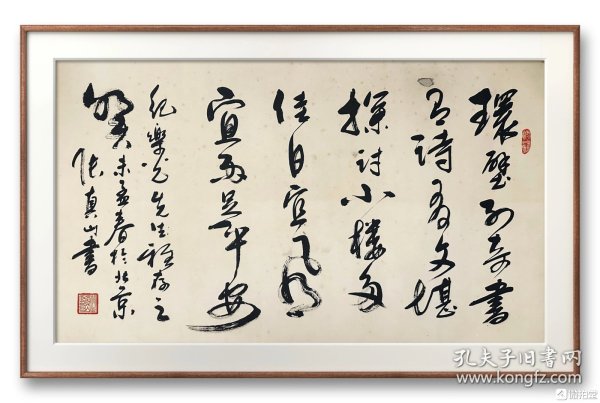 環壁列奇書
有詩有文堪
探討小樓多
佳日宜風
宜雨足平安
紀樂先生雅存之
癸未孟春於北京
張真山書
孔夫子旧书网
www.kongfz.com
微拍堂